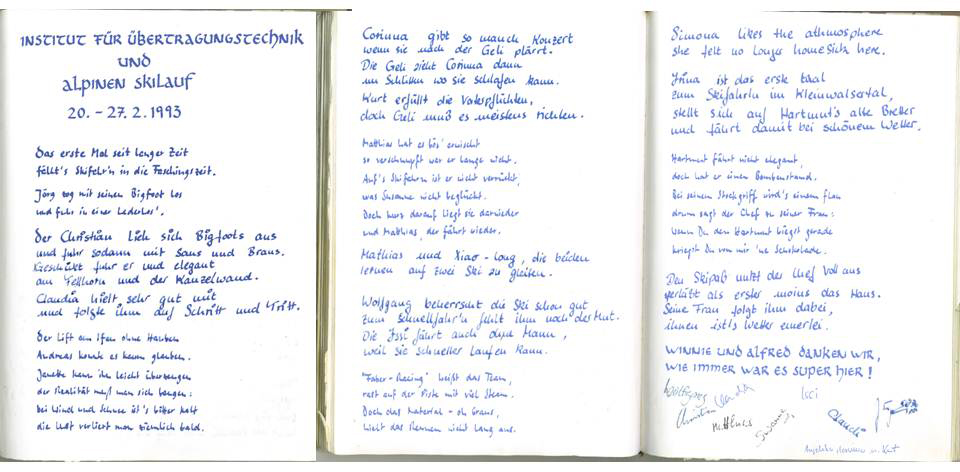 INSTITUT FÜR ÜBERTRAGUNGSTECHNIK
UND
ALPINEN SKILAUF
20. – 27. 2. 1993
Das erste Mal seit langer Zeit
fällt's Skifahr'n in die Faschingszeit.
Jörg zog mit seinen Bigfoot los
und fuhr in einer Lederhos'.
Der Christian lieh sich Bigfoots aus
und fuhr sodann mit Saus und Braus.
Geschickt fuhr er und elegant
am Fellhorn und der Kanzelwand.
Claudia hielt sehr gut mit
und folgte ihm auf Schritt und Tritt.
Der Lift am Ifen ohne Hauben
Andreas konnte es kaum glauben.
Janette kann ihn leicht überzeugen
der Realität muß man sich beugen:
bei Wind und Schnee ist's bitter kalt
die Lust verliert man ziemlich bald.
Corinna gibt so manch Konzert
wenn sie nach der Geli plärrt.
Die Geli zieht Corinna dann
im Schlitten wo sie schlafen kann.
Kurt erfüllt die Vaterpflichten,
doch Geli muß es meistens richten.
Matthias hat es bös' erwischt
so verschnupft war er lange nicht.
Auf's Skifahren ist er nicht verrückt,
was Susanne nicht beglückt.
Doch kurz darauf liegt sie darnieder
und Matthias, der fährt wieder.
Mathias und Xiao-long, die beiden
lernen auf zwei Ski zu gleiten.
Wolfgang beherrscht die Ski schon gut
zum schnellfahr'n fehlt ihm noch der Mut.
Die Issi fährt auch ohne Mann,
weil sie schneller laufen kann.
"Faber-Racing" heißt das Team,
rast auf der Piste mit viel Steam.
Doch das Material - oh Graus,
hielt das Rennen nicht lang aus.
Simona likes the athmosphere
she felt no longer homesick here.
Irina ist das erste Maal
zum Skifahrn im Kleinwalsertal,
stellt sich auf Hartmut's alte Bretter
und fährt damit bei schönem Wetter.
Hartmut fährt nicht elegant,
doch hat er einen Bombenstand.
Bei seinem Stockgriff wird's einem flau
drum sagt der Chef zu seiner Frau:
wenn Du den Hartmut biegst gerade
kriegst Du von mir 'ne Schokolade.
Den Skipaß nutzt der Chef voll aus
verläßt als erster moins das Haus.
Seine Frau folgt ihm dabei,
ihnen ist's Wetter einerlei.
WINNIE UND ALFRED DANKEN WIR,
WIE IMMER WAR ES SUPER HIER!
Wolfgang
Issi
Christian
Matthias
Susanne
Claudi